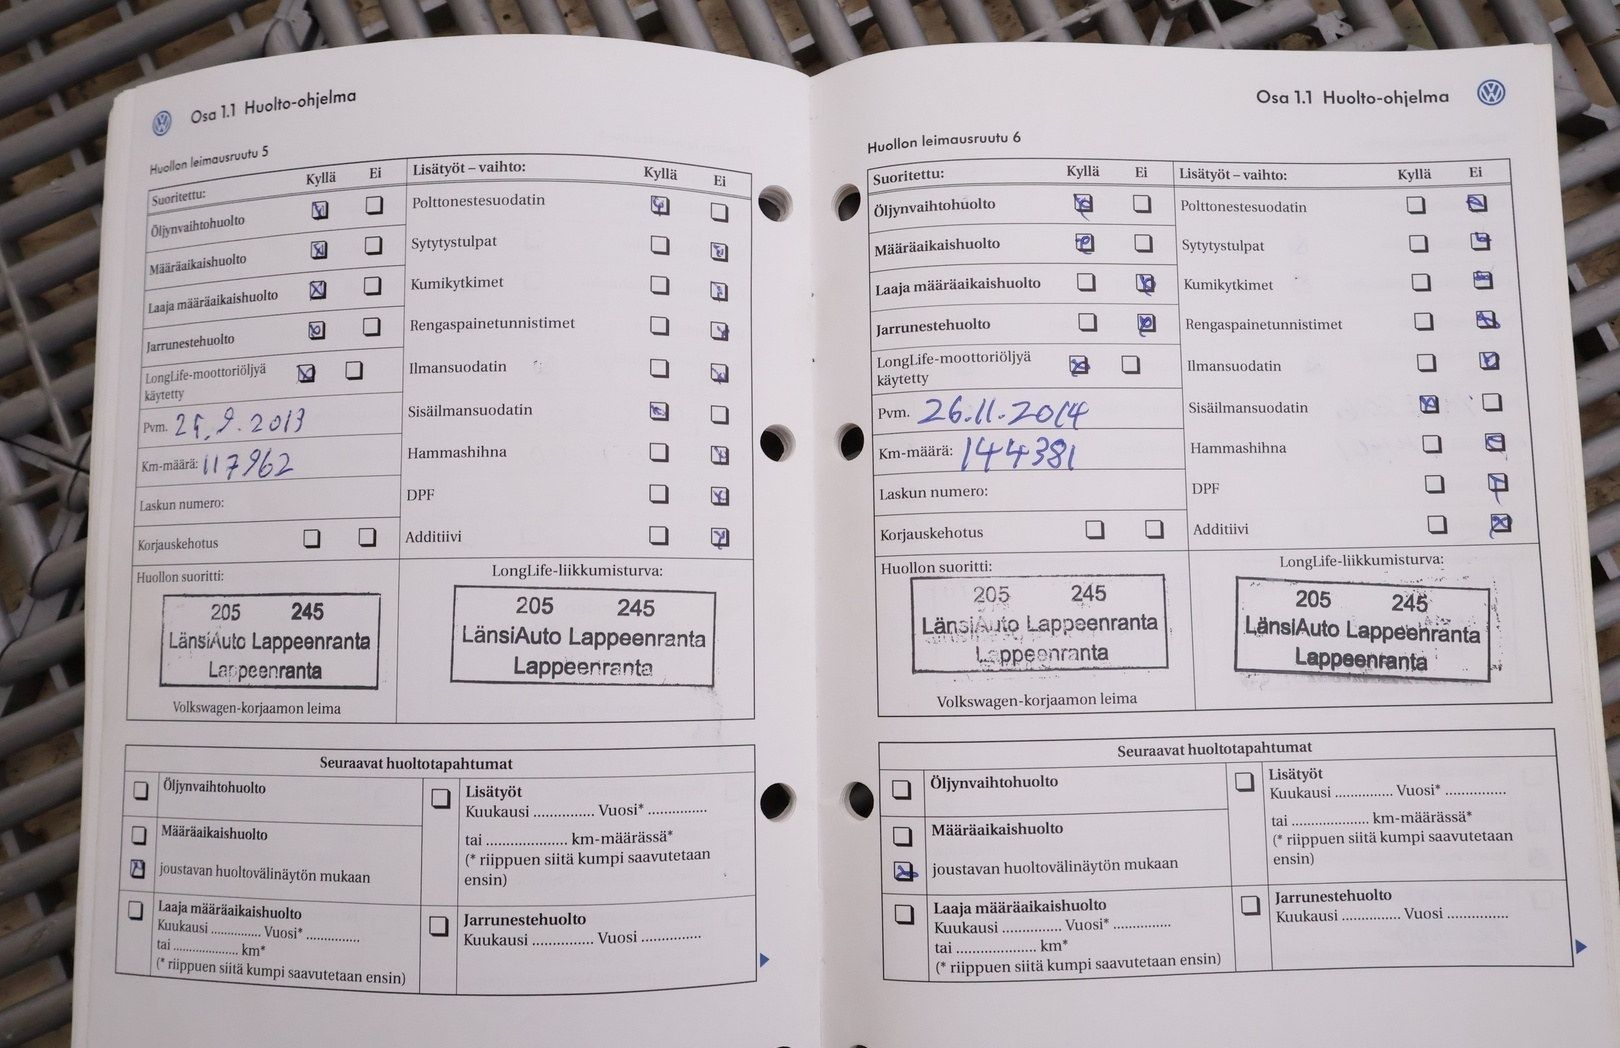 Osa 1.1 Huolto-ohjelma
Huollon leimausruutu 5
Suoritettu: Kyllä Ei
Öljynvaihtohuolto
Määräaikaishuolto
Laaja määräaikaishuolto
Jarrunestehuolto
LongLife-moottoriöljyä
käytetty
Pvm.
Km-määrä: 117962
Laskun numero:
Korjauskehotus
Lisätyöt – vaihto: Kyllä Ei
Polttonestesuodatin
Sytytystulpat
Kumikytkimet
Rengaspainetunnistimet
Ilmansuodatin
Sisäilmansuodatin
Hammashihna
DPF
Additiivi
Huollon suoritti:
205 245
LänsiAuto Lappeenranta
Lappeenranta
Volkswagen-korjaamon leima
LongLife-liikkumisturva:
205 245
LänsiAuto Lappeenranta
Lappeenranta
Seuraavat huoltotapahtumat
Öljynvaihtohuolto
Määräaikaishuolto
joustavan huoltovälinäytön mukaan
Laaja määräaikaishuolto
Kuukausi .............. Vuosi* ...............
tai .................. km*
(* riippuen siitä kumpi saavutetaan ensin)
Lisätyöt
Kuukausi ............... Vuosi* ...............
tai ..................... km-määrässä*
(* riippuen siitä kumpi saavutetaan
ensin)
Jarrunestehuolto
Kuukausi ............... Vuosi ...............
Osa 1.1 Huolto-ohjelma
Huollon leimausruutu 6
Suoritettu: Kyllä Ei
Öljynvaihtohuolto
Määräaikaishuolto
Laaja määräaikaishuolto
Jarrunestehuolto
LongLife-moottoriöljyä
käytetty
Pvm. 26.11.2014
Km-määrä: 144381
Laskun numero:
Korjauskehotus
Lisätyöt – vaihto: Kyllä Ei
Polttonestesuodatin
Sytytystulpat
Kumikytkimet
Rengaspainetunnistimet
Ilmansuodatin
Sisäilmansuodatin
Hammashihna
DPF
Additiivi
Huollon suoritti:
205 245
LänsiAuto Lappeenranta
Lappeenranta
Volkswagen-korjaamon leima
LongLife-liikkumisturva:
205 245
LänsiAuto Lappeenranta
Lappeenranta
Seuraavat huoltotapahtumat
Öljynvaihtohuolto
Määräaikaishuolto
joustavan huoltovälinäytön mukaan
Laaja määräaikaishuolto
Kuukausi ............... Vuosi* ...............
tai ..................... km*
(* riippuen siitä kumpi saavutetaan ensin)
Lisätyöt
Kuukausi ............... Vuosi* ...............
tai ..................... km-määrässä*
(* riippuen siitä kumpi saavutetaan
ensin)
Jarrunestehuolto
Kuukausi ............... Vuosi ...............